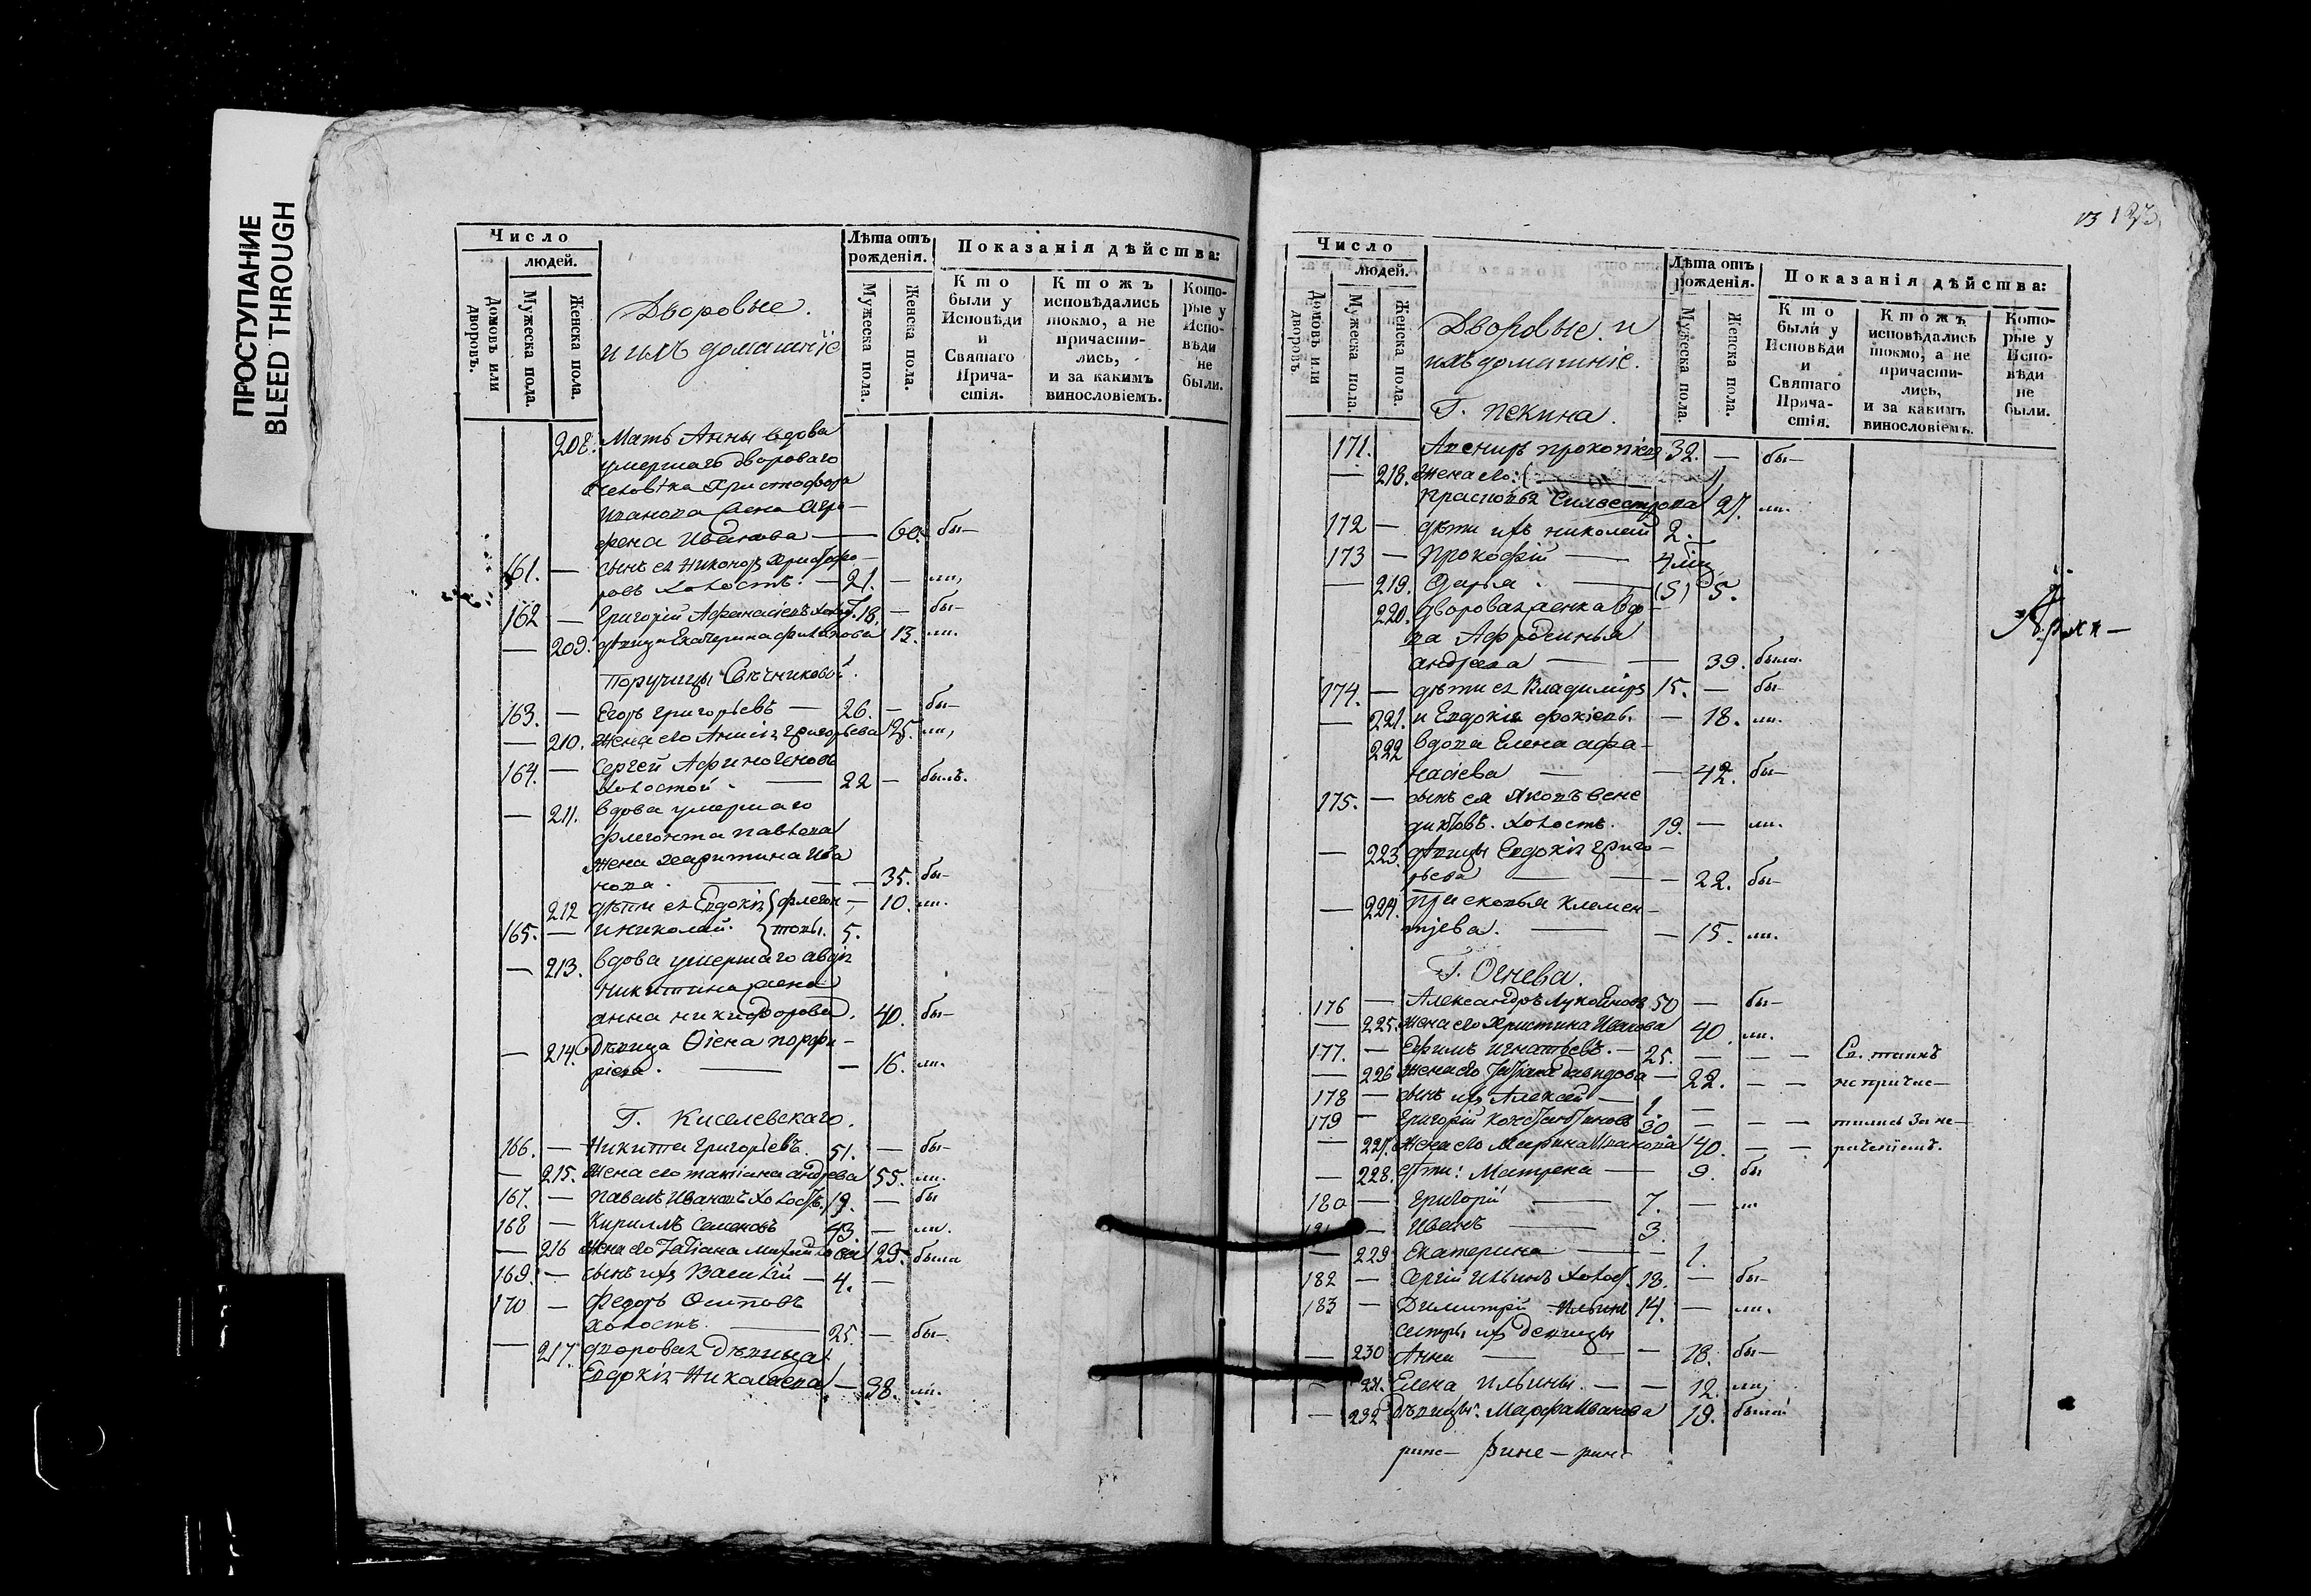 ПРОСТУПАНИЕ
BLEED THROUGH
Число
людей.
Домовъ или дворовъ.
Мужеска пола.
Женска пола.
Дворовые.
и ихъ домашніе
Лѣта отъ рожденія.
Мужеска пола.
Женска пола.
Показанія дѣйства:
Кто были у Исповѣди и Святаго Причастія.
Ктожъ исповѣдались токмо, а не причастились, и за какимъ винословіемъ.
Которые у Исповѣди не были.
208. Мать Анны вдова
умершаго двороваго
человѣка Христофора
Иванова жена Агро-
фена Иванова — 60. бы—
161. — сынъ ея Никоноръ Христофо-
ровъ холостъ. — 21. — ли,
162 — Григорій Афанасіевъ холос. 18. — бы—
— 209. дѣвица Екатерина Филипова 13. ли.
поручицы Свѣчниковой.
163. — Егоръ Григорьевъ — 26. — бы—
— 210. Жена его Анисія Григорьева 25. ли,
164. — Сергей Афиногеновъ
холостой. — 22 — былъ.
— 211. вдова умершаго
Флегонта Павлова
жена Харитина Ива
нова. — — 35. бы—
212 дѣти ея Евдокія флегон — 10. ли.
165. — и Николай. товы. 5.
— 213. вдова умершаго Авдія
Никитина жена
Анна Никифорова. 40. бы—
— 214. Дѣвица Ѳіена Порфи-
ріева. — — 16. ли.
Г. Киселевскаго.
166. — Никита Григорьевъ. 51. — бы—
— 215. Жена его Татіана Андреева 55. ли.
167. — Павелъ Ивановъ холостъ. 19. — бы
168 — Кириллъ Семеновъ 43. — ли.
— 216 Жена его Татіана Михайлова 29. была
169. — сынъ ихъ Василій — 4. —
170 — Федоръ Осиповъ
холостъ. — 25. — бы—
— 217. дворовая дѣвица
Евдокія Николаева — 38. ли.
Число
людей.
Домовъ или дворовъ
Мужеска пола.
Женска пола.
Дворовые. и
ихъ домашніе.
Лѣта отъ рожденія.
Мужеска пола.
Женска пола.
Показанія дѣйства:
Кто были у Исповѣди и Святаго Причастія.
Ктожъ исповѣдались токмо, а не причастились, и за какимъ винословіемъ.
Которые у Исповѣди не были.
Г. Пекина.
171. 32. — бы—
— 218. Жена его:
Сильвестрова 27. ли.
172 — дѣти ихъ Николай 2.
173 — Прокофій — 4 мѣ
— 219. Дарья. — (5) 5.
220. Дворовая женка вдо-
ва Афросинья
Андреева — — 39. была.
174. — дѣти ея Владиміръ 15. — бы—
— 221. и Евдокія — 18. ли.
222 вдова Елена Афа-
насіева — — 42. бы—
175. — сынъ ея Яковъ Вене
диктовъ. холостъ. 19. — ли.
— 223. дѣвицы Евдокія Григо-
рьева — — 22. бы—
— 224. Присковья Клемен-
тіева. — — 15. ли.
Г. Огнева.
176 — Александръ Лукояновъ 50 — бы—
— 225. Жена его Христина Иванова 40. ли.
177. — Ефимъ Игнатьевъ. — 25. — — — Св. таинъ
— 226 Жена его Татіана Давидова — 22. — — не причас—
178 — сынъ ихъ Алексей — 1. —
179 — Григорій Константиновъ 30 — — — тились за не—
— 227. Жена его Марина Иванова 40. — — раченіемъ.
— 228. дѣти: Матрена — 9. бы
180 — Григорій — 7. — ли
— Иванъ — 3.
— 229. Екатерина — — 1.
182 — Сергій Ильинъ холос. 18. — бы—
183 — Димитрій Ильинъ 14. — ли.
сестры ихъ девицы
— 230 Анна — — 18. бы—
— 231. Елена Ильины. — — 12. ли,
— 232 Дѣвицы. Марфа Иванова 19. была